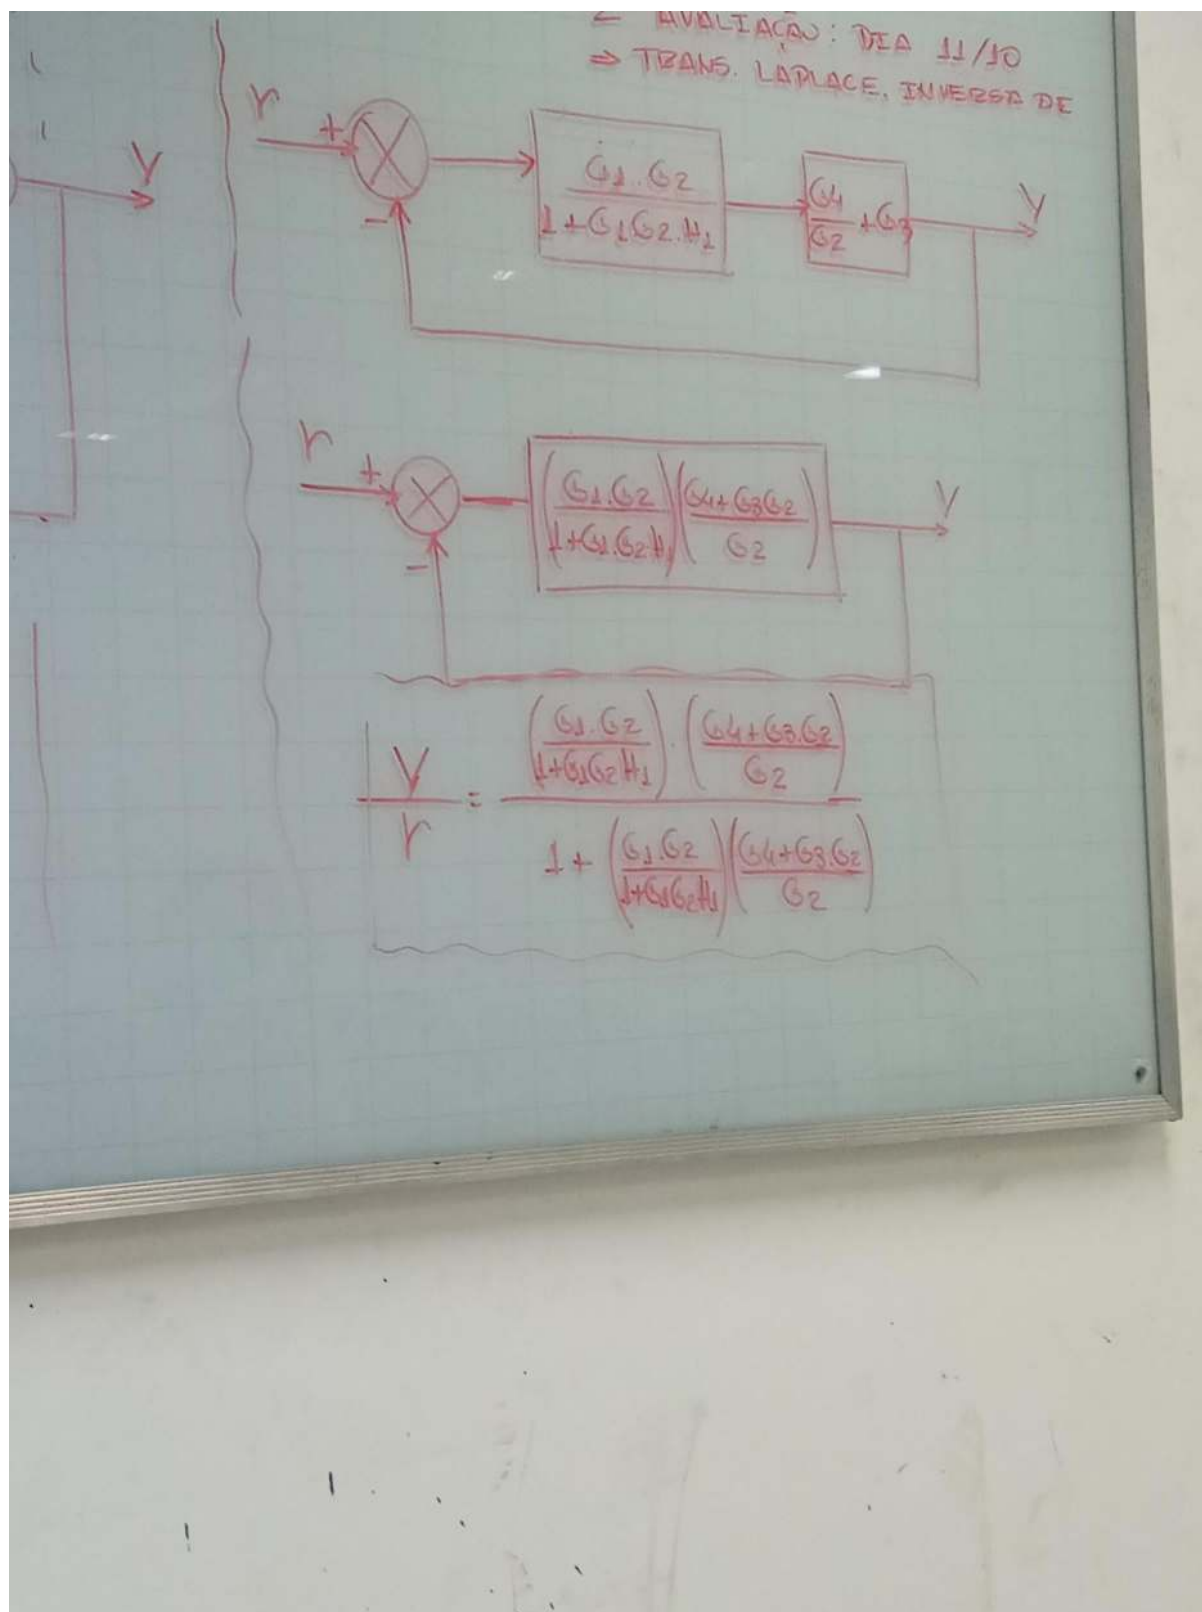 AVALIAÇÃO: DIA 11/10
⇒ TRANS. LAPLACE, INVERSA DE
Y
r + - G1.G2 / 1+G1G2.H1 G4/G2 +G3 Y
r + - (G1.G2 / 1+G1.G2.H1) (G4+G3G2 / G2) Y
Y/r = (G1.G2 / 1+G1G2H1) . (G4+G3.G2 / G2)
1 + (G1.G2 / 1+G1G2H1) (G4+G3.G2 / G2)